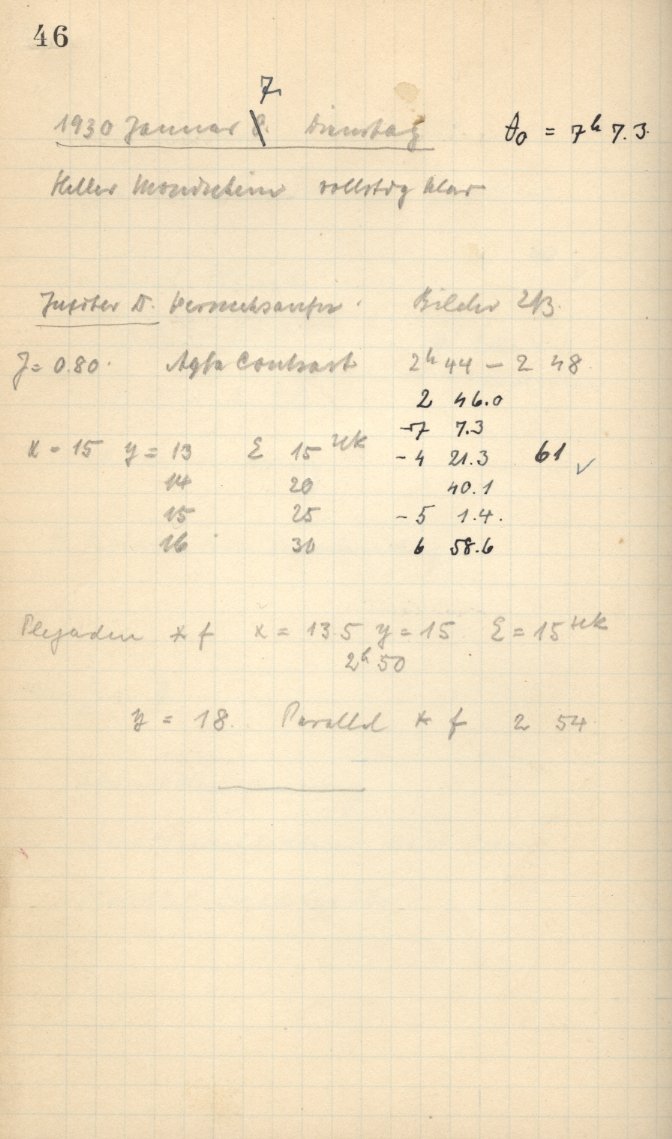 46
7
1930 Januar 8. Dienstag θ0 = 7h 7.3
Heller Mondschein vollstdg klar
Jupiter Bilder 2/3
J = 0.80 Agfa Contrast 2h 44 – 2 48
2 46.0
-7 7.3
x = 15 y = 13 Σ 15 sek - 4 21.3 61 ✓
14 20 40.1
15 25 - 5 1.4.
16 30 6 58.6
Plejaden * f x = 13 5 y = 15 Σ = 15 sek
2h 50
y = 18. Parallel * f 2 54